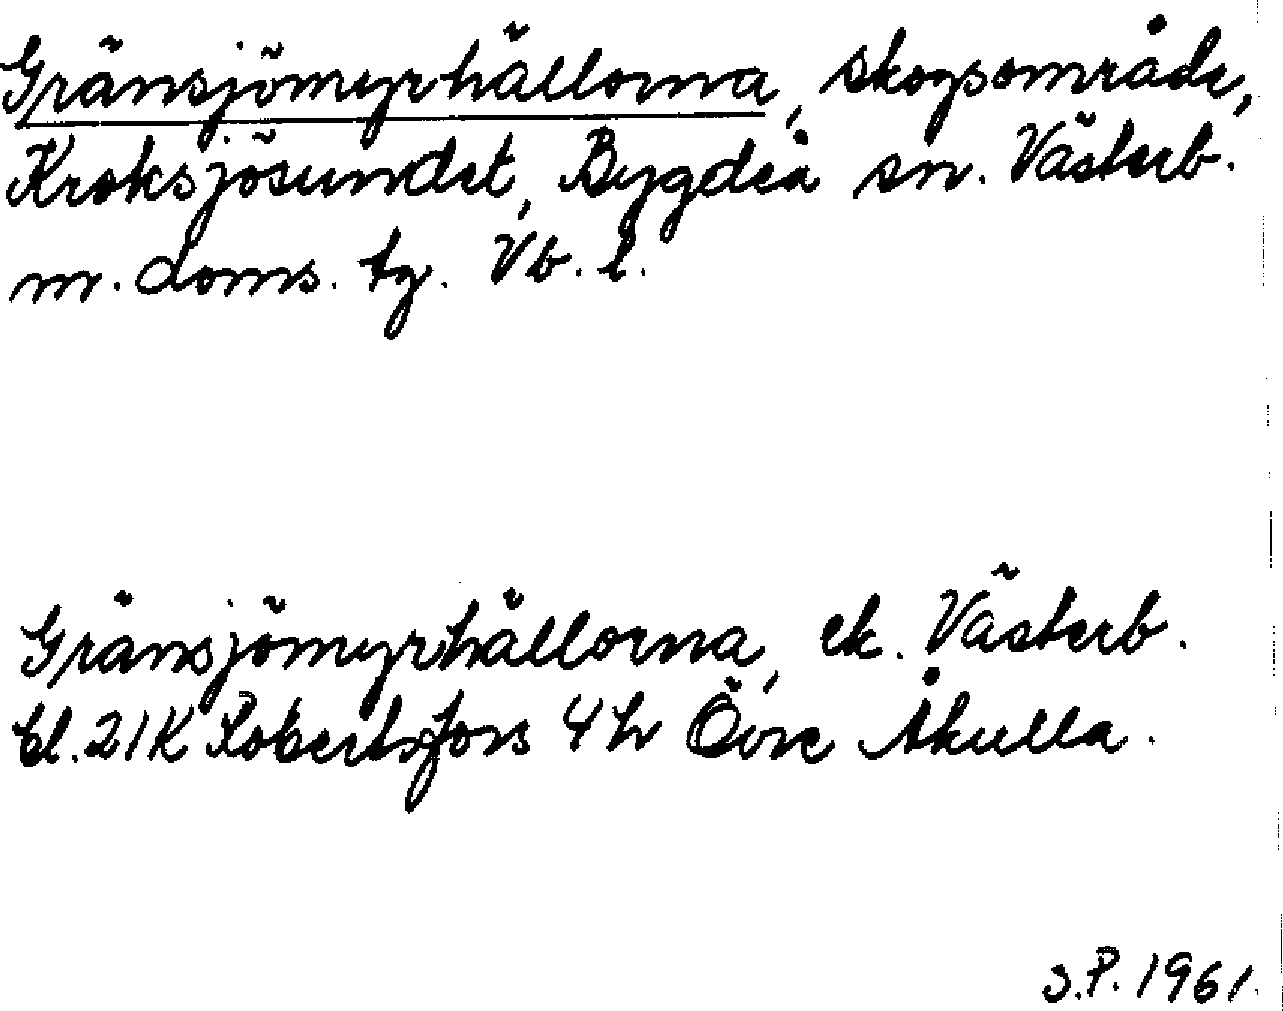 Gränsjömyrhällorna, skogsområde,
Kroksjösundet, Bygdeå sn. Västerb.
m. doms. tg. Vb. l.
Gränsjömyrhällorna, ek. Västerb.
bl. 21K Robertsfors 4h Övre Åkulla.
S.P. 1961.